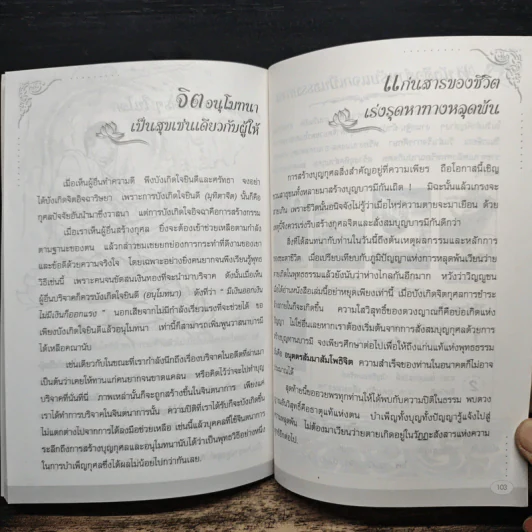 จิตอนุโมทนา
เป็นสุขเช่นเดียวกับผู้ให้
เมื่อเห็นผู้อื่นทำความดี พึงบังเกิดใจยินดีและศรัทธา จงอย่า
ได้บังเกิดจิตอิจฉาริษยา เพราะการบังเกิดใจยินดี (มุทิตาจิต) นั้นก็คือ
กุศลปัจจัยอันนำมาซึ่งวาสนา แต่การบังเกิดใจอิจฉาคือการสร้างกรรม
เมื่อเราเห็นผู้อื่นสร้างกุศล ยิ่งจะต้องเข้าช่วยเหลือตามกำลัง
ตามฐานะของตน แล้วกล่าวชมเชยยกย่องการกระทำที่ดีงามของเขา
และข้อดีด้วยความจริงใจ โดยเฉพาะอย่างยิ่งคนยากจนพึงเรียนรู้พุทธ
วิธีเช่นนี้ เพราะคนจนขัดสนเงินทองที่จะนำมาบริจาค ดังนั้นเมื่อเห็น
ผู้อื่นบริจาคก็ควรบังเกิดใจยินดี (อนุโมทนา) ดังที่ว่า " มีเงินออกเงิน
ไม่มีเงินออกแรง " นอกเสียจากไม่มีกำลังเรี่ยวแรงที่จะช่วยได้ ขอ
เพียงบังเกิดใจยินดีแล้วอนุโมทนา เท่านี้ก็สามารถเพิ่มพูนวาสนาบารมี
ได้เหลือคณานับ
เช่นเดียวกับในขณะที่เรากำลังนึกถึงเรื่องบริจาคในอดีตที่ผ่านมา
เป็นต้นว่าเคยให้ทานแก่คนยากจนขาดแคลน หรือคิดไว้ว่าจะไปทำบุญ
บริจาคที่นั่นที่นี่ ภาพเหล่านั้นก็จะถูกสร้างขึ้นในจินตนาการ เพียงแค่
เราได้ทำการบริจาคในจินตนาการนั้น ความปีติที่เราได้รับก็จะบังเกิดขึ้น
ไม่แตกต่างไปจากการได้ลงมือช่วยเหลือ เช่นนี้แล้วบุคคลที่ใช้จินตนาการ
ระลึกถึงการสร้างบุญกุศลและอนุโมทนานับได้ว่าเป็นพุทธวิธีอย่างหนึ่ง
ในการบำเพ็ญกุศลซึ่งได้ผลไม่น้อยไปกว่ากันเลย.
แก่นสารของชีวิต
เร่งรุดหาทางหลุดพ้น
การสร้างบุญกุศลสิ่งสำคัญอยู่ที่ความเพียร ถือโอกาสนี้เชิญ
ชวนสาธุชนทั้งหลายมาสร้างบุญบารมีกันเถิด ! มิฉะนั้นแล้วเกรงจะ
กัน เพราะชีวิตนั้นอนิจจังไม่รู้ว่าเมื่อไหร่ความตายจะมาเยือน ด้วย
จึงควรเร่งรีบสร้างกุศลจิตและสั่งสมบุญบารมีกันดีกว่า
สิ่งที่ได้สนทนากับท่านในวันนี้ถึงต้นเหตุผลกรรมและหลักการ
เมื่อเปรียบเทียบกับภูมิปัญญาแห่งการหลุดพ้นเวียนว่าย
ในพุทธธรรมแล้วยังนับว่าห่างไกลกันอีกมาก หวังว่าวิญญูชน
ได้อ่านหนังสือเล่มนี้อย่าหยุดเพียงเท่านี้ เมื่อบังเกิดจิตกุศลการชำระ
ภายในก็จะเกิดขึ้น ความใสวิสุทธิ์ของดวงญาณก็คือบ่อเกิดแห่ง
ไม่ใช่อื่นเลยหากเราต้องเริ่มต้นจากการสั่งสมบุญกุศลด้วยการ
บุญทานบารมี จงเพียรศึกษาต่อไปเพื่อให้ถึงแก่นแท้แห่งพุทธธรรม
อนุตรสัมมาสัมโพธิจิต ความสำเร็จของท่านในอนาคตก็ไม่อาจ
ได้
สุดท้ายนี้ขออวยพรทุกท่านให้ได้พบกับความปีติในธรรม พบดวง
วิสุทธิ์คือธาตุแท้แห่งตน บำเพ็ญทั้งบุญทั้งปัญญารู้แจ้งไปสู่
หลุดพ้น ไม่ต้องมาเวียนว่ายตายเกิดอยู่ในวัฏฏะสังสารแห่งความ
ต่อไป.
103